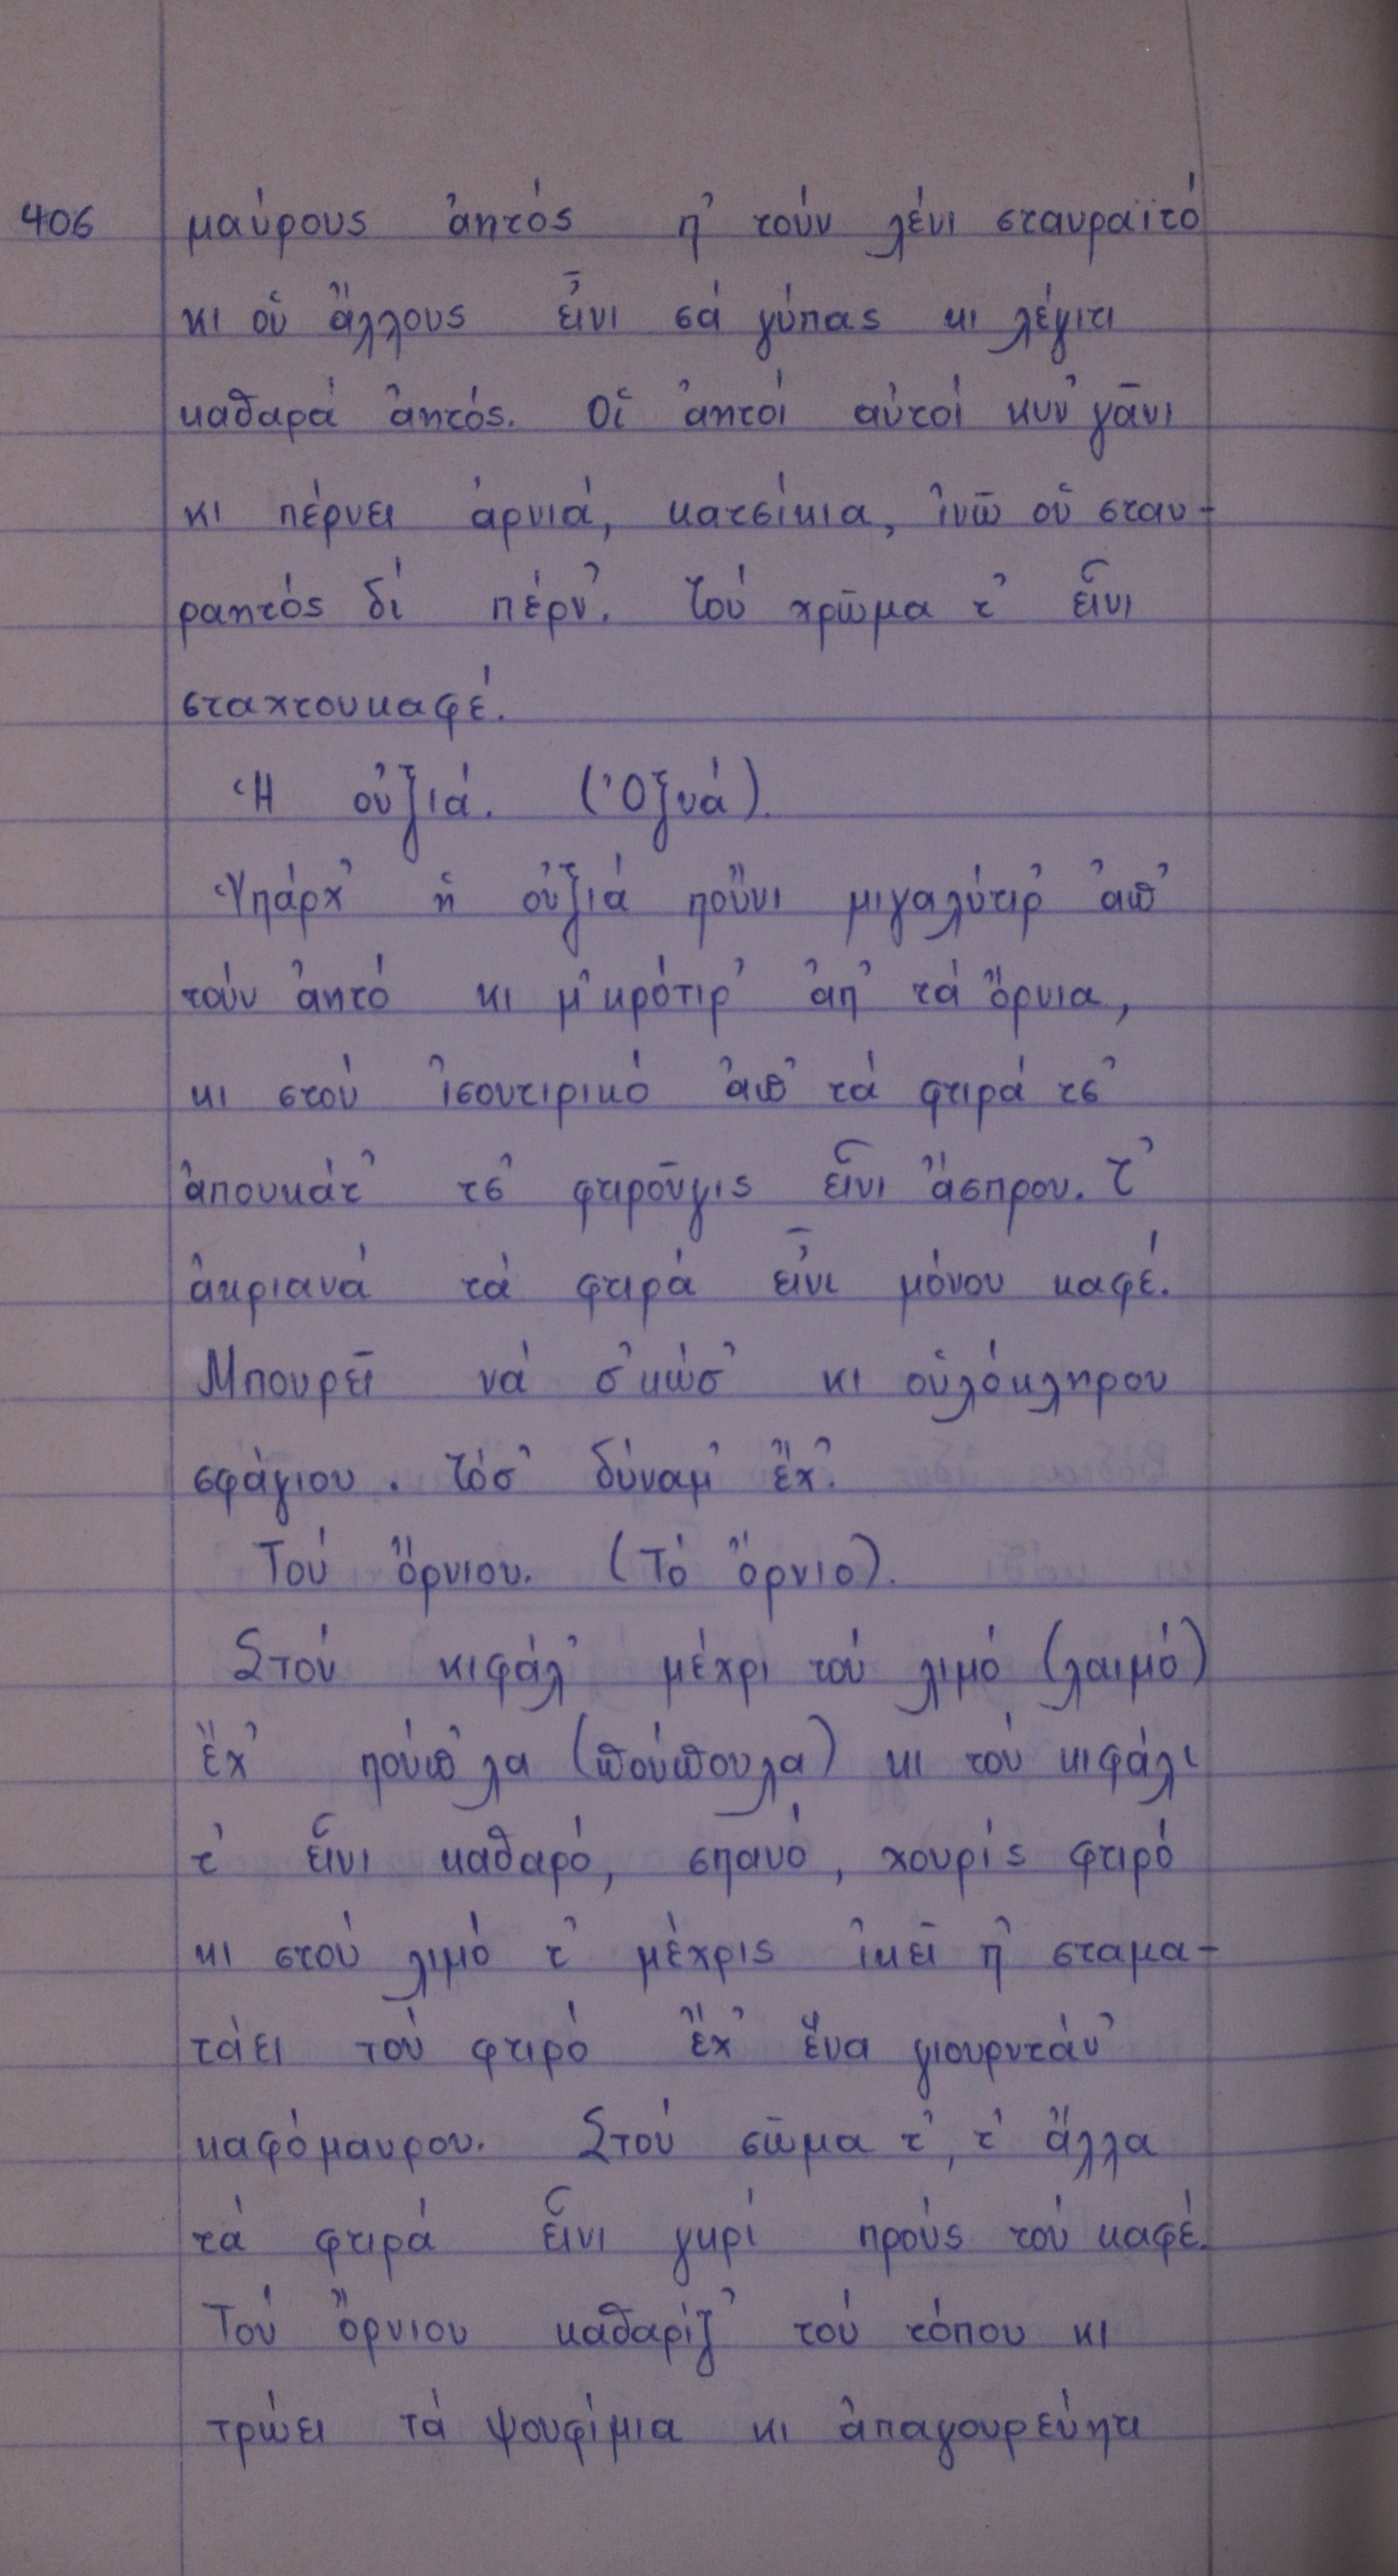 406 μαύρους ἀητός π' τούν λένι σταυραϊτό
κι οὑ ἄλλους εἶνι σά γύπας κι λέγιτι
καθαρά ἀητός. Οἱ ἀητοί αὐτοί κυν'γᾶνι
κι πέρνει ἀρνιά, κατσίκια, ἰνῶ οὑ σταυ-
ραητός δί πέρν'. Τού χρῶμα τ' εἶνι
σταχτουκαφέ.
Ἡ οὐξιά. (Ὀξυά).
Ὑπάρχ' ἡ οὐξιά ποὔνι μιγαλύτιρ' ἀπ'
τούν ἀητό κι μ'κρότιρ' ἀπ' τά ὄρνια,
κι στού ἰσουτιρικό ἀπ' τά φτιρά τς'
ἀπουκάτ' τς' φτιροῦγις εἶνι ἄσπρου. Τ'
ἀκριανά τά φτιρά εἶνι μόνου καφέ.
Μπουρεῖ νά σ'κώσ' κι οὑλόκληρου
σφάγιου. Τόσ' δύναμ' ἔχ'.
Τού ὄρνιου. (Τό ὄρνιο).
Στού κιφάλ' μέχρι τού λιμό (λαιμό)
ἔχ' πούπ'λα (πούπουλα) κι τού κιφάλι
τ' εἶνι καθαρό, σπανό, χουρίς φτιρό
κι στού λιμό τ' μέχρις ἰκεῖ π' σταμα-
τάει τού φτιρό ἔχ' ἕνα γιουρντάν'
καφόμαυρου. Στού σῶμα τ', τ' ἄλλα
τά φτιρά εἶνι γκρί πρού́ς τού καφέ.
Τού ὄρνιου καθαρίζ' τού τόπου κι
τρώει τά ψουφίμια κι ἀπαγουρεύητι